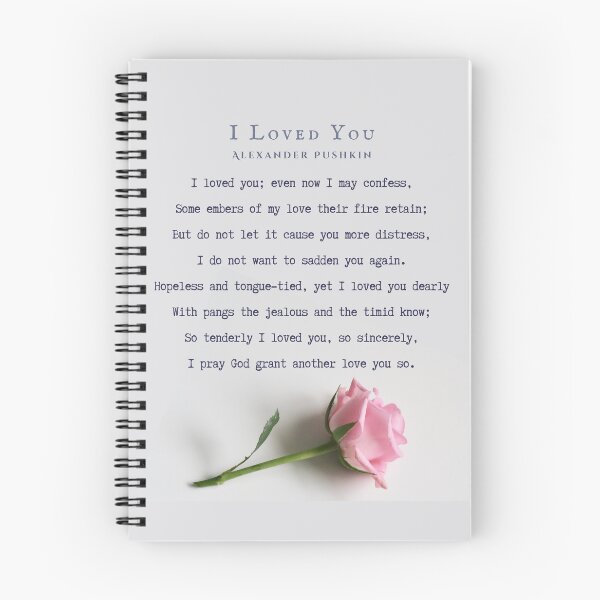 I Loved You
Alexander Pushkin
I loved you; even now I may confess,
Some embers of my love their fire retain;
But do not let it cause you more distress,
I do not want to sadden you again.
Hopeless and tongue-tied, yet I loved you dearly
With pangs the jealous and the timid know;
So tenderly I loved you, so sincerely,
I pray God grant another love you so.